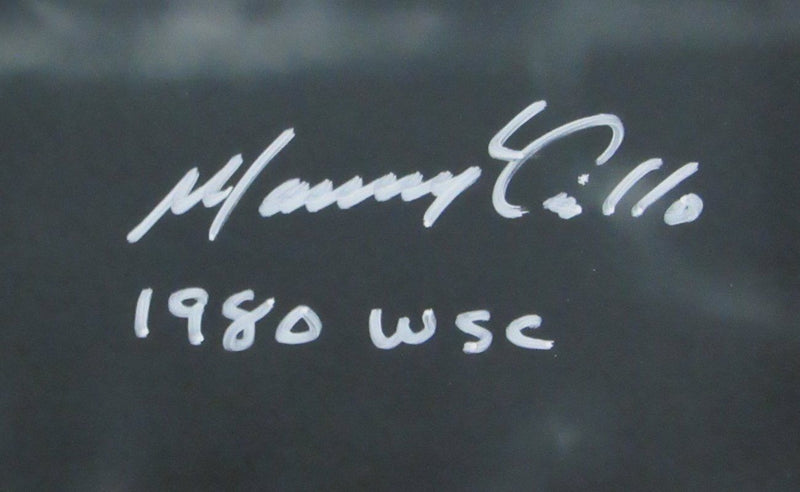 Manny Trillo
1980 WSC